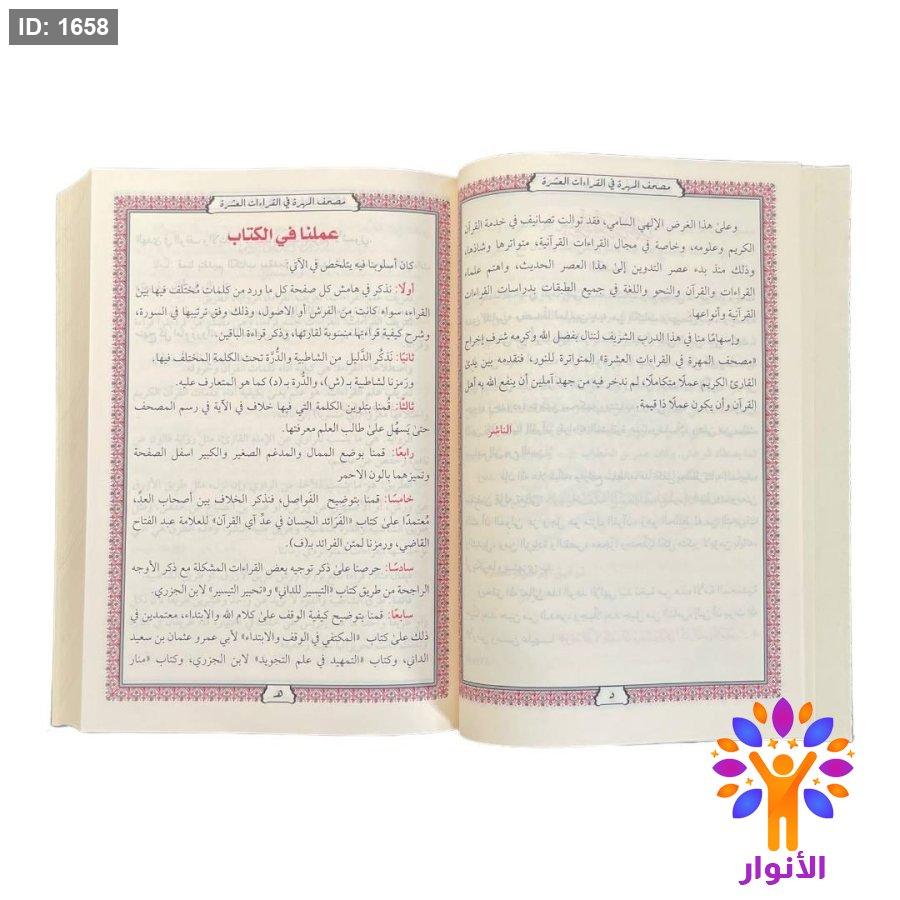 ID: 1658
مصحف المهرة في القراءات العشرة
وعلىٰ هذا الغرض الإلهي السامي، فقد توالت تصانيف في خدمة القرآن
الكريم وعلومه، وخاصة في مجال القراءات القرآنية، متواترها وشاذها،
وذلك منذ بدء عصر التدوين إلىٰ هذا العصر الحديث، واهتم علماء
القراءات والقرآن والنحو واللغة في جميع الطبقات بدراسات القراءات
القرآنية وأنواعها.
وإسهامًا منا في هذا الدرب الشريف لننال بفضل الله وكرمه شرف إخراج
«مصحف المهرة في القراءات العشرة» المتواترة للنور، فنقدمه بين يدىٰ
القارئ الكريم عملًا متكاملًا، لم ندخر فيه من جهد آملين أن ينفع الله به أهل
القرآن وأن يكون عملًا ذا قيمة.
الناشر
د
مصحف المهرة في القراءات العشرة
عملنا في الكتاب
كان أسلوبنا فيه يتلخّص في الآتي:
أولًا: نذكر في هامش كل صفحة كل ما ورد من كلمات مُختَلَف فيها بين
القراء، سواء كانت من الفرش أو الأصول، وذلك وفق ترتيبها في السورة،
وشرح كيفية قراءتها منسوبة لقارئها، وذكر قراءة الباقين.
ثانيًا: نَذكُر الدَّليل من الشاطبية والدُّرة تحت الكلمة المختلف فيها،
ورَمزنا لشاطبية بـ (ش)، والدُّرة بـ (د) كما هو المتعارف عليه.
ثالثًا: قُمنا بتلوين الكلمة التي فيها خلاف في الآية في رسم المصحف
حتىٰ يَسهُل علىٰ طالب العلم معرفتها.
رابعًا: قمنا بوضع الممال والمدغم الصغير والكبير اسفل الصفحة
وتميزهما بالون الاحمر
خامسًا: قمنا بتوضيح الفَواصل، فنذكر الخلاف بين أصحاب العدِّ،
مُعتمدًا علىٰ كتاب «الفَرَائد الحسان في عدِّ آي القرآن» للعلامة عبد الفتاح
القاضي، ورمزنا لمتن الفرائد بـ(ف).
سادسًا: حرصنا علىٰ ذكر توجيه بعض القراءات المشكلة مع ذكر الأوجه
الراجحة من طريق كتاب «التيسير للداني» و«تحبير التيسير» لابن الجزري.
سابعًا: قمنا بتوضيح كيفية الوقف علىٰ كلام الله والابتداء، معتمدين في
ذلك علىٰ كتاب «المكتفي في الوقف والابتداء» لأبي عمرو عثمان بن سعيد
الداني، وكتاب «التمهيد في علم التجويد» لابن الجزري، وكتاب «منار
هـ
الأنوار